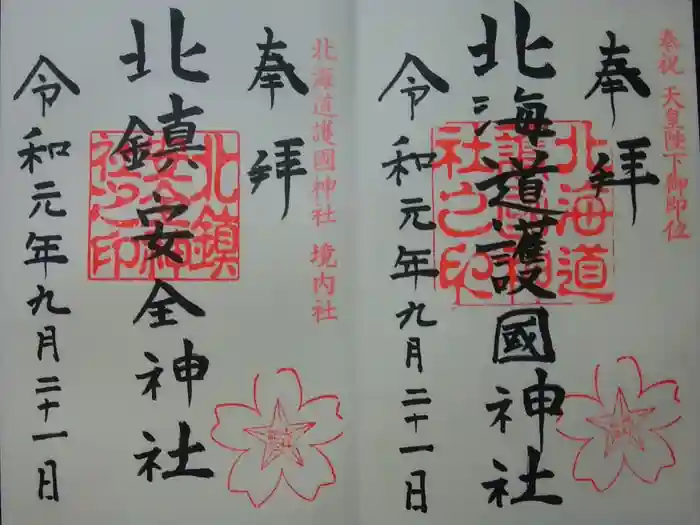 奉祝 天皇陛下御即位
奉拝
北海道護國神社
北海道護國神社之印
令和元年九月二十一日
北海道護國神社 境内社
奉拝
北鎮安全神社
北鎮安全神社之印
令和元年九月二十一日